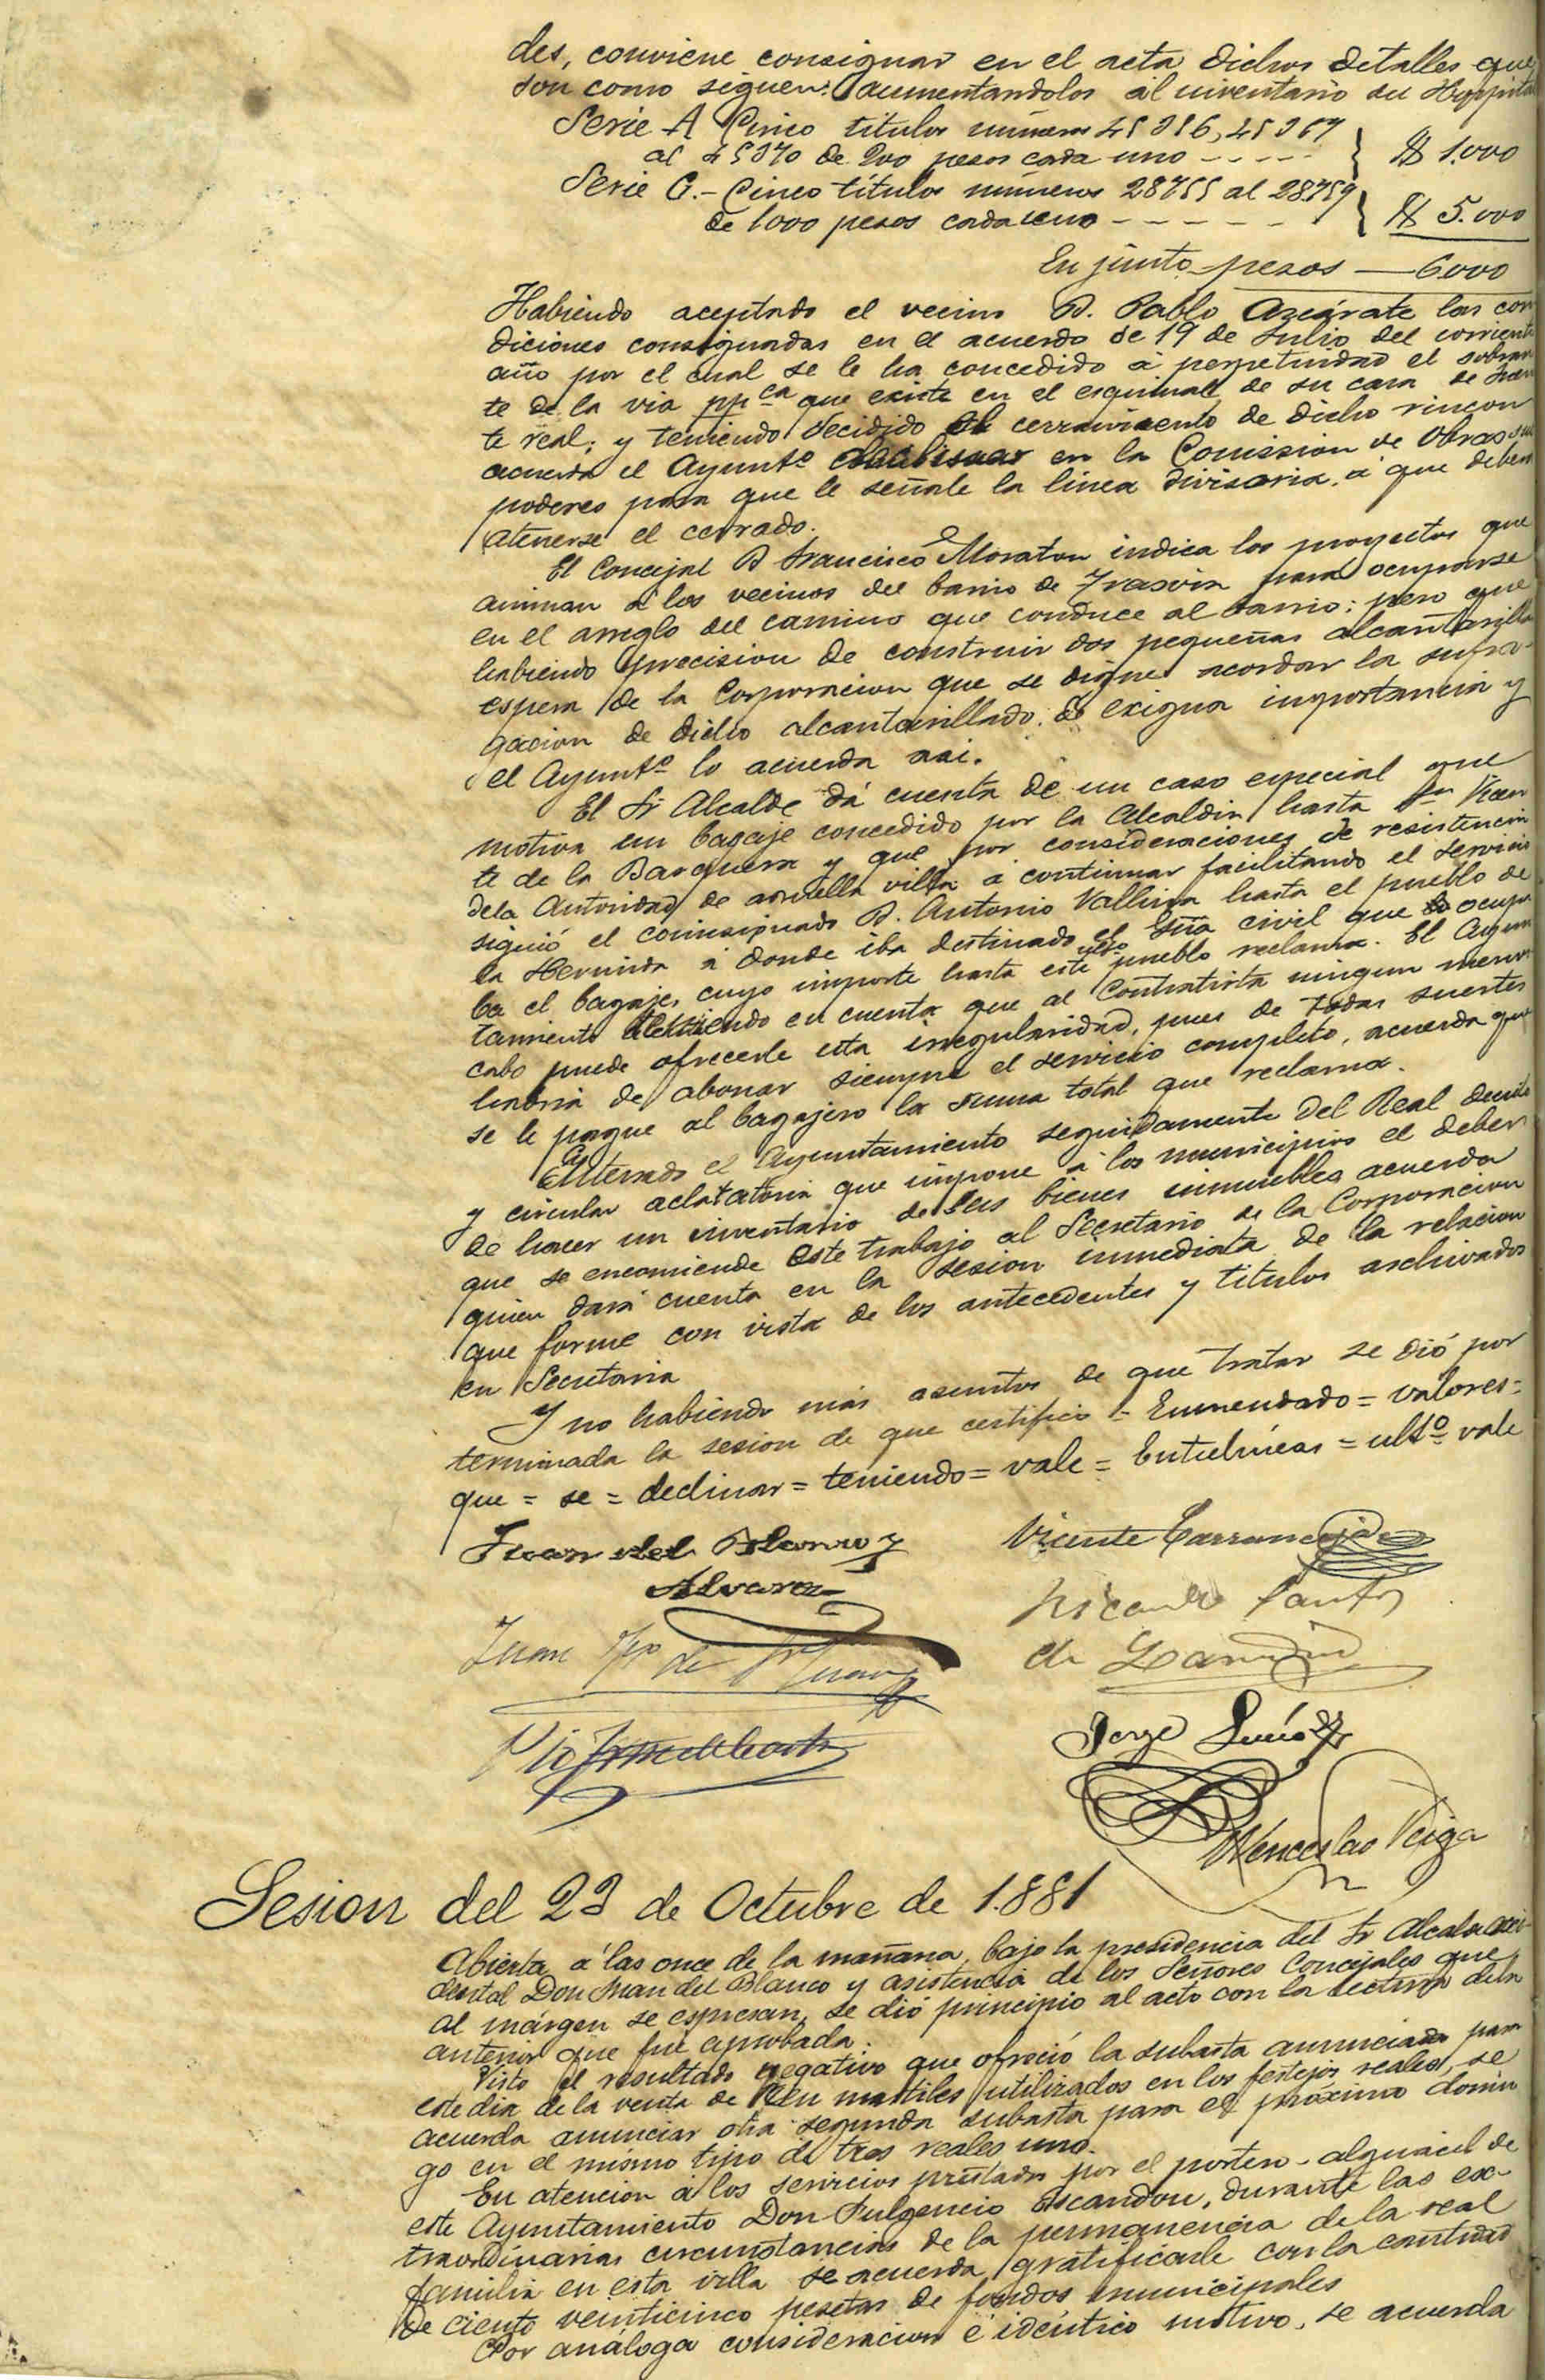 des, conviene consignar en el acta dichos detalles que
son como siguen: aumentandolos al inventario su
Serie A Cinco titulos números
al 45370 de 200 pesos cada uno - - - - - $ 1.000
Serie C.- Cinco títulos números 28755 al 28759
de 1000 pesos cada uno - - - - - - $ 5.000
En junto pesos — 6000
Habiendo aceptado el vecino D. Pablo Azcárate las con
diciones consignadas en el acuerdo de 19 de Julio del corriente
año por el cual se le ha concedido á perpetuidad el sobran
te de la via ppca que existe en el esquinal de su casa de
te real; y teniendo decidido el cerramiento de dicho rincon
acuerda el Ayunto declinar en la Comission de Obras sus
poderes para que le señale la línea divisoria á que deben
atenerse el cerrado.
El Concejal D Francisco Moraton indica los proyectos que
animan á los vecinos del barrio de Trasvia para ocuparse
en el arreglo del camino que conduce al barrio: pero que
habiendo precision de construir dos pequeñas alcantarilla
espera de la Corporacion que se digne acordar la sufra-
gacion de dicho alcantarillado de exigua importancia y
el Ayunto lo acuerda asi.
El Sr Alcalde dá cuenta de un caso especial que
motiva un bagaje concedido por la Alcaldia hasta Sn Vicen
te de la Barquera y que por consideraciones de resistencia
dela Autoridad de aquella villa á continuar facilitando el servicio
siguió el comisionado D. Antonio Vallina hasta el pueblo de
la Hermida á donde iba destinado el Gda civil que ocupa
ba el bagaje, cuyo importe hasta este ulto pueblo reclama. El Ayun
tamiento teniendo en cuenta que al Contratista ningun menos
cabo puede ofrecerle esta irregularidad, pues de todas suertes
habria de abonar siempre el servicio completo, acuerda que
se le pague al bagajero la suma total que reclama.
Enterado el Ayuntamiento seguidamente del Real decreto
y circular aclaratoria que impone á los municipios el deber
de hacer un inventario de sus bienes inmuebles acuerda
que se encomiende este trabajo al Secretario de la Corporacion
quien dará cuenta en la sesion inmediata de la relacion
que forme con vista de los antecedentes y titulos archivados
en Secretaria
Y no habiendo más asuntos de que tratar se dió por
terminada la sesion de que certifico = Enmendado = valores =
que = se = declinar = teniendo = vale = Entrelíneas = ulto = vale
Juan del Blanco y
Alvarez
Vicente Carranceja
Juan de
de
Jorge
Wenceslao Veiga
Sesion del 23 de Octubre de 1.881
Abierta á las once de la mañana, bajo la presidencia del Sr Alcalde acci-
dental Don Juan del Blanco y asistencia de los Señores Concejales que
al márgen se espresan, se dió principio al acto con la lectura dela
anterior que fué aprobada.
Visto el resultado negativo que ofreció la subasta anunciada para
este dia de la venta de mastiles utilizados en los festejos reales, se
acuerda anunciar otra segunda subasta para el próximo domin
go en el mismo tipo de tres reales uno.
En atencion á los servicios prestados por el portero-alguacil de
este Ayuntamiento Don Fulgencio Escandon, durante las ex-
traordinarias circunstancias de la permanencia de la real
familia en esta villa se acuerda gratificarle con la cantidad
de ciento veinticinco pesetas de fondos municipales
Por análoga consideracion é idéntico motivo, se acuerda